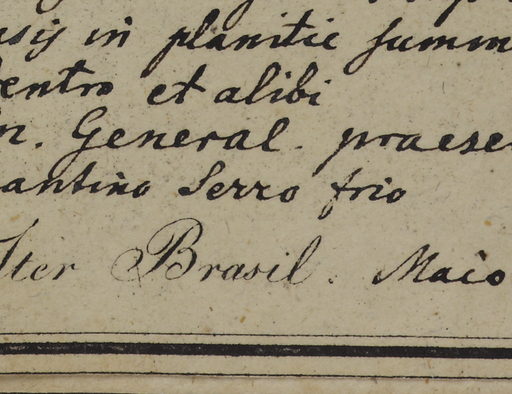 in planitie summ
entro et alibi
n. General. praese
antino Serro frio
Iter Brasil. Maio